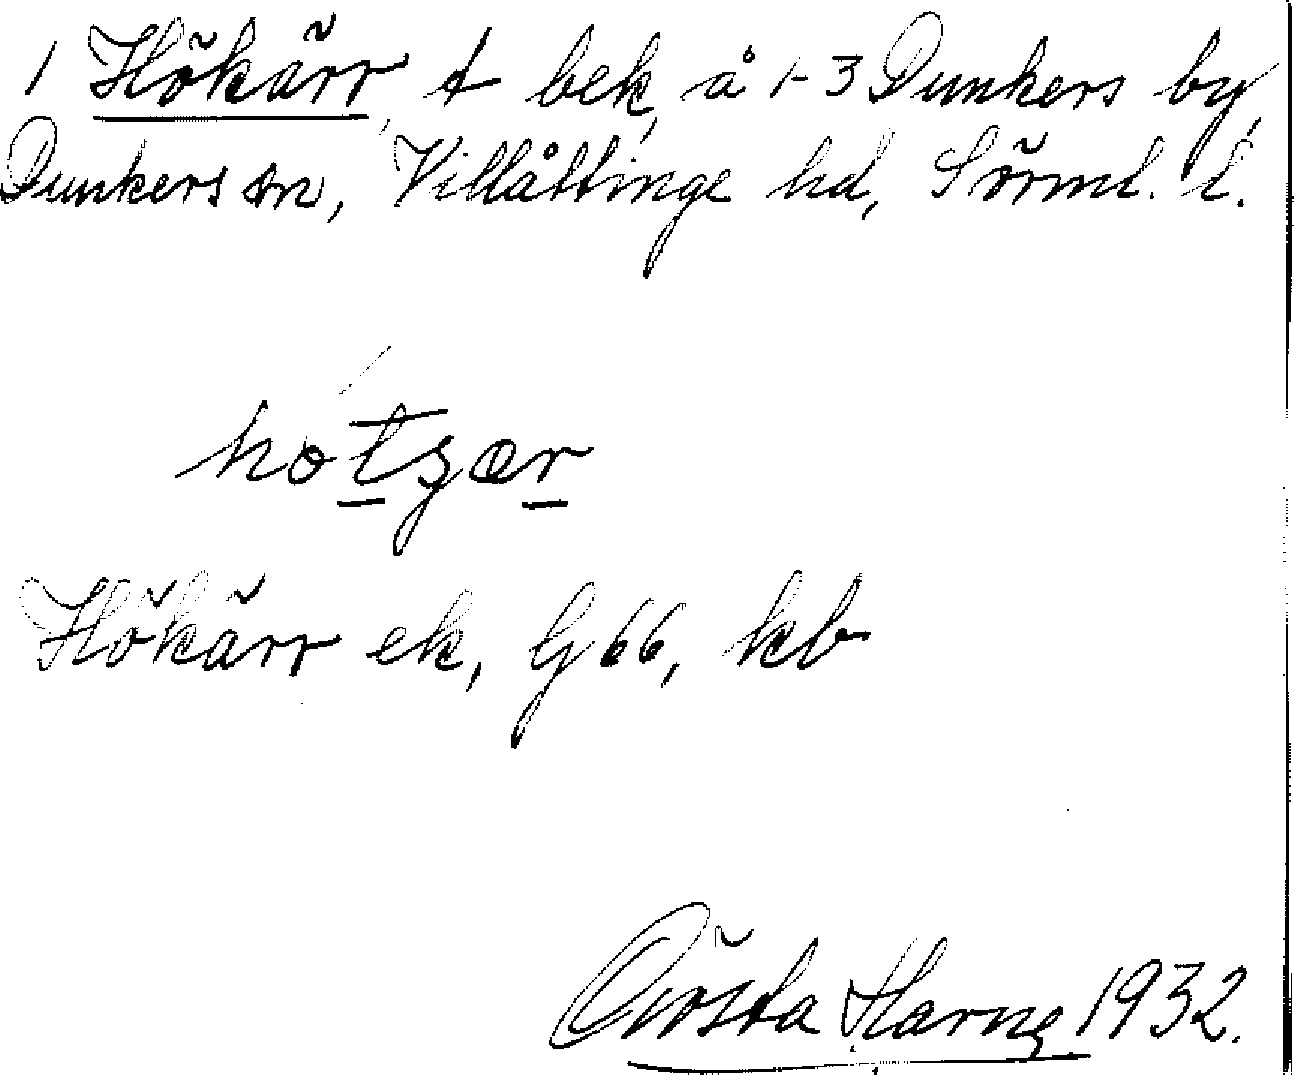 1 Hökärr, t bek, å 1-3 Dunkers by,
Dunkers sn, Villåttinge hd, Sörml. l.
Hökärr ek, G 66, kb
Gösta Harne 1932.